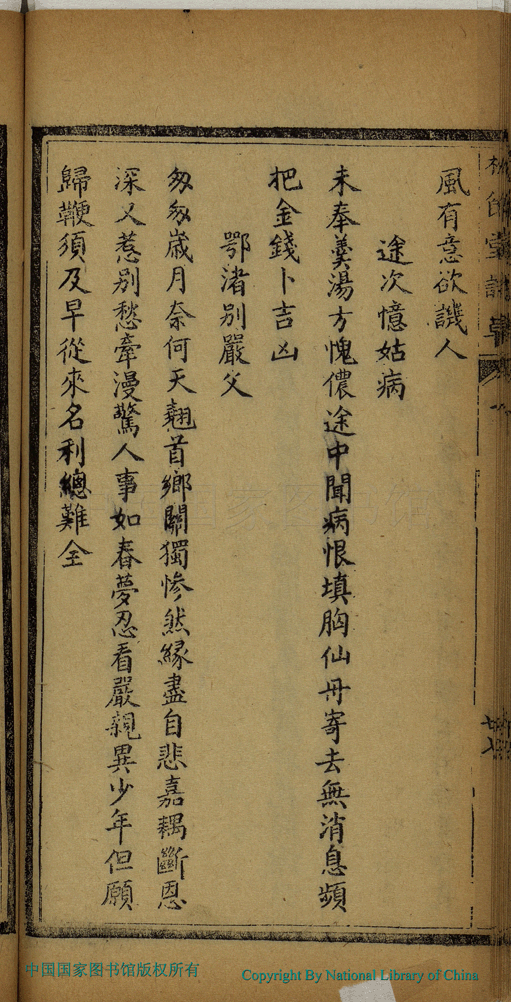 風有意欲譏人
途次憶姑病
未奉羹湯方愧儂途中聞病恨填胸仙丹寄去無消息頻
把金錢卜吉凶
鄂渚別嚴父
匆匆歲月奈何天翹首鄉關獨慘然緣盡自悲嘉耦斷恩
深又惹別愁牽漫驚人事如春夢忍看嚴親異少年但願
歸鞭須及早從來名利總難全
中国国家图书馆版权所有
Copyright By National Library of China